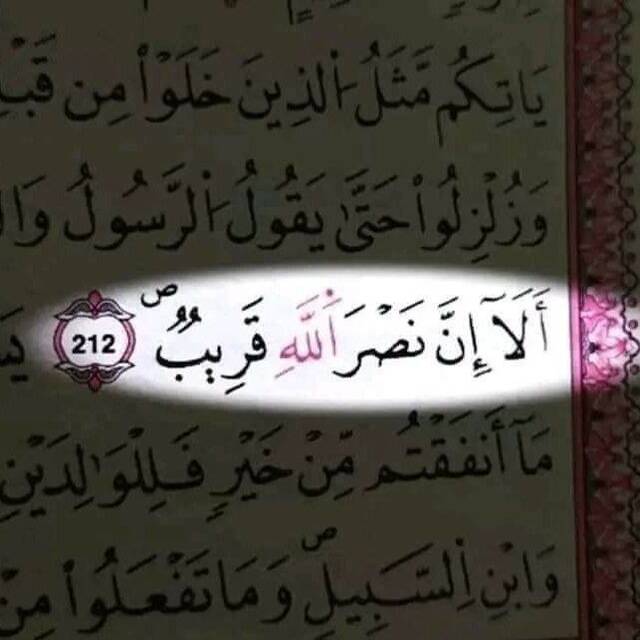 يَاتِكُم مَّثَلُ اَ۬لذِينَ خَلَوْاْ مِن
وَزُلْزِلُواْ حَتَّىٰ يَقُولُ اُ۬لرَّسُولُ
أَلَآ إِنَّ نَصْرَ اَ۬للَّهِ قَرِيبٌ ص 212
مَآ أَنفَقْتُم مِّنْ خَيْرٍ فَلِلْوَٰلِدَيْنِ
وَابْنِ اِ۬لسَّبِيلِ ص وَمَا تَفْعَلُواْ مِنْ